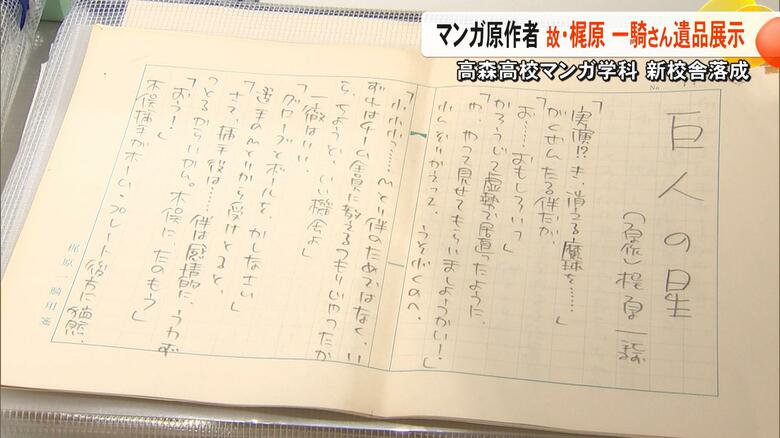 マンガ原作者 故・梶原 一騎さん遺品展示
高森高校マンガ学科 新校舎落成
No.
巨人の星
(原作) 梶原一騎
「実演!?き、消える魔球を……」
がくぜんたる伴だが、
「お……おもしろいっ」
かろうじて虚勢で居直ったように、
「や、やって見せてもらいましょうかい!」
「小小小っ……Mとり伴のためではなく、い
ずれはチーム全員に教えるつもりじゃったか
ら、ちょうど、いい機会よ」
一徹はいい、
「グローブとボールを、かしなさい」
選手のMとりから受けとると、
「さて、捕手役は……伴は感情的に、うわず
っとるからいかん。木俣に、たのもう」
「おう!」
木俣捕手がホーム・プレート後方に猛然、
梶原一騎用箋